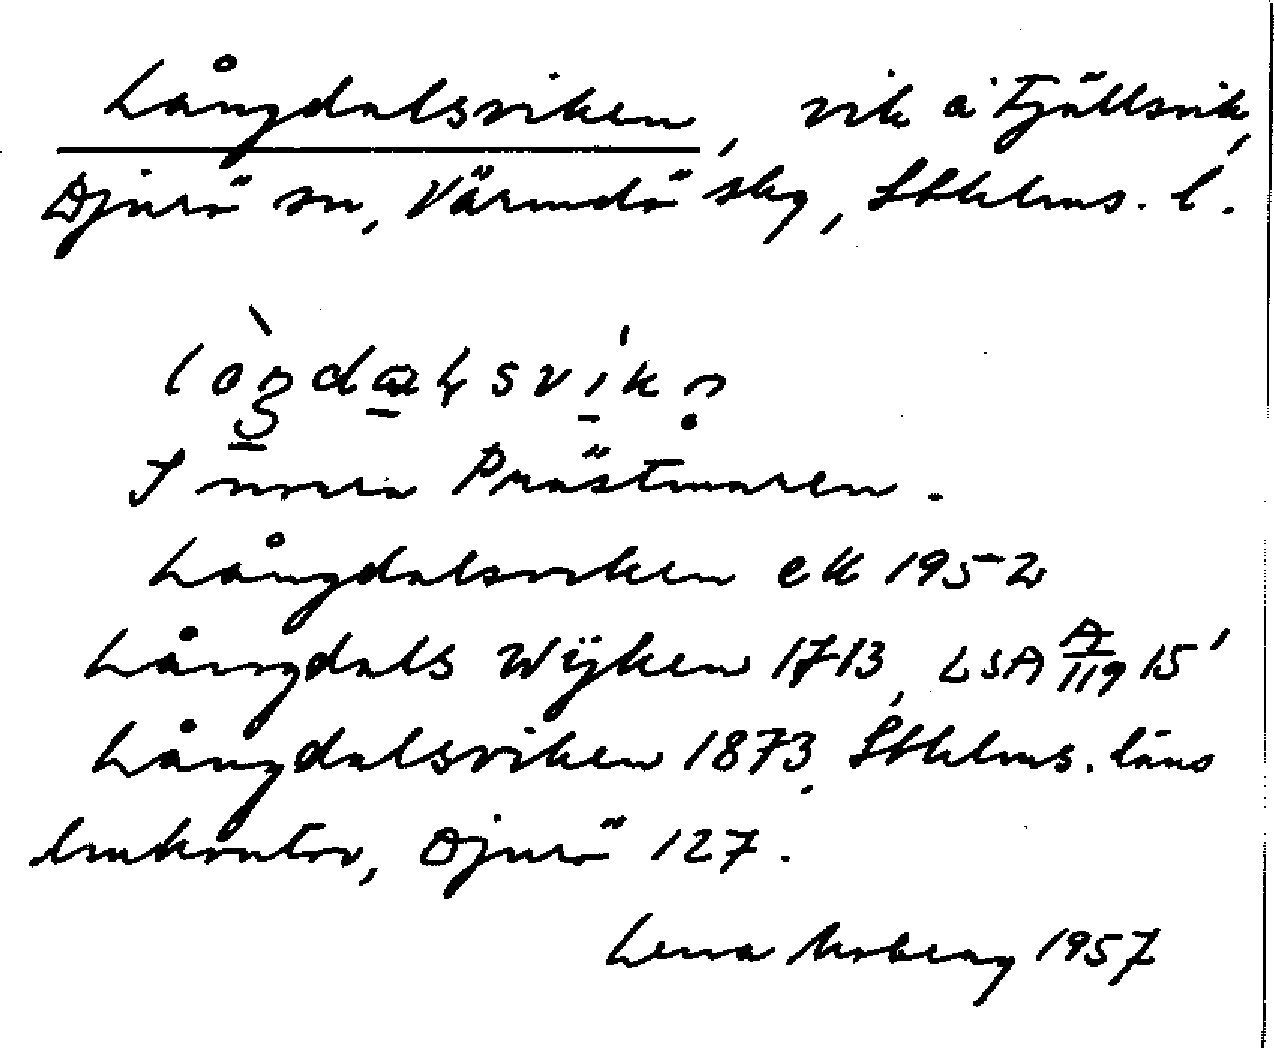 Långdalsviken, vik å Fjällsvik,
Djurö sn, Värmdö skg, Sthlms. l.
I norra Prästmaren.
Långdalsviken ek 1952
Långdals Wijken 1713, LSA A/119 15¹
Långdalsviken 1873, Sthlms. läns
lmkontor, Djurö 127.
Lena Moberg 1957